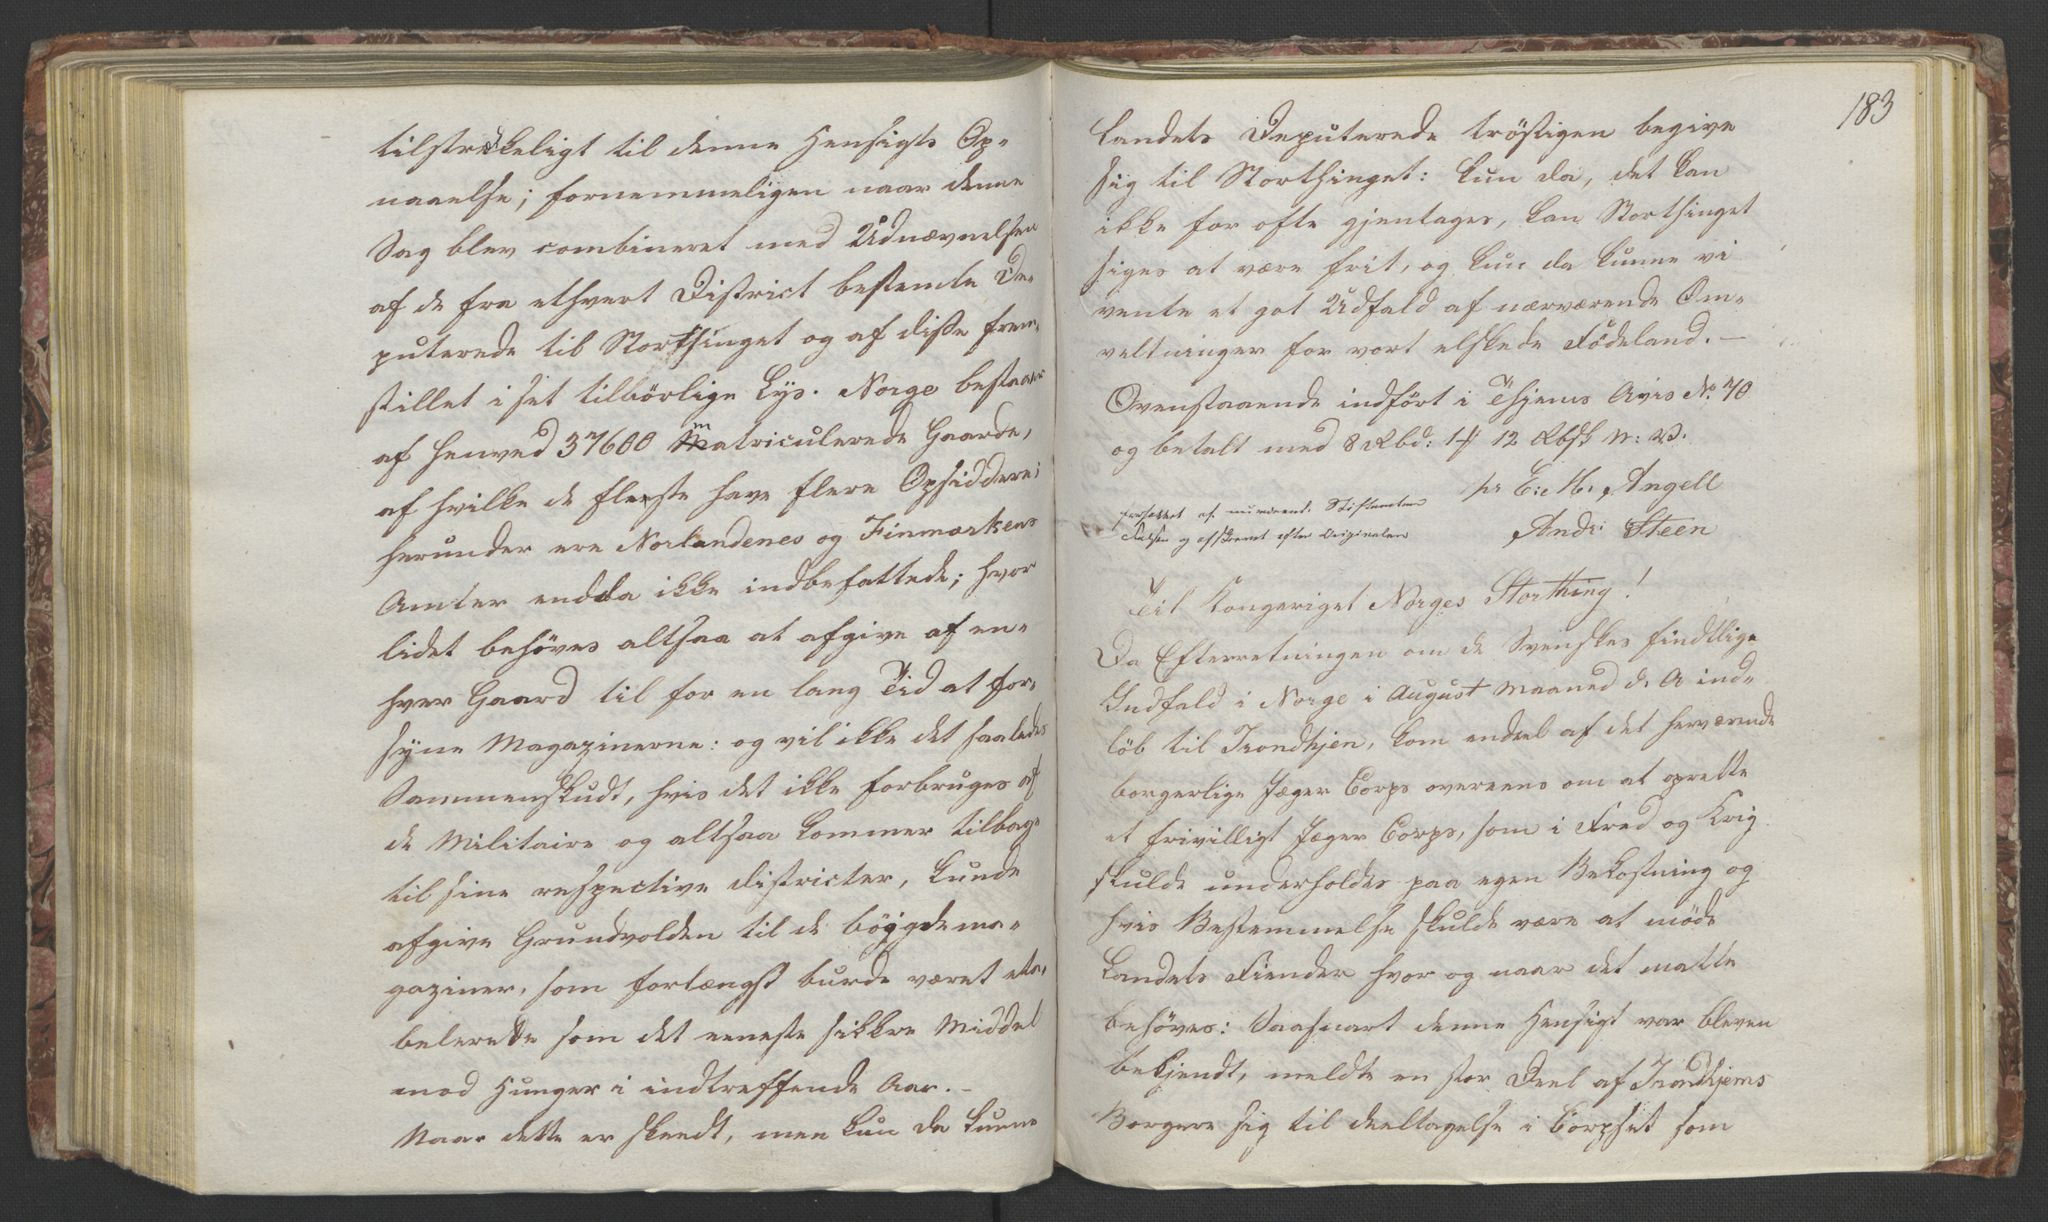 tilstrækeligt til denne Hensigts Op-
naaelse; fornemmeligen naar denne
Sag blev combineret med Udnævnelsen
af de fra ethvert District bestemte De-
puterede til Storthinget og af disse frem-
stillet i sit tilbörlige Lys. Norge bestaaer
af henved 37600 Matriculerede Gaarde,
af hvilke de fleeste have flere Opsiddere;
herunder ere Norlandenes og Finmarkens
Amter endda ikke indbefattede; hvor
lidet behöves altsaa at afgive af en-
hver Gaard til for en lang Tid at for-
syne Magazinerne: og vil ikke det saaledes
Sammenskudt, hvis det ikke forbruges af
de Militaire og altsaa kommer tilbage
til sine respective districter, kunde
afgive Grundvolden til de böygdema-
gaziner, som forlængst burde været eta-
belerede som det eeneste sikkre Middel
mod Hunger i indtreffende Aar. -
Naar dette er skeedt, men kun da kunne
183
Landets Deputerede tröstigen begive
sig til Storthinget: kun da, det kan
ikke for ofte gjentages, kan Storthinget
siges at være frit, og kun da kunne vi
vente et got Udfald af nærværende Om-
veltninger for vort elskede Födeland. -
Ovenstaaende indfört i Thjems Avis No. 70
og betalt med 8 Rbd: 1 # 12 Rbsk N: V.
pr E: M: Angell
And: Steen
forfattet af nuværend. Stiftamtm
Falsen og afskrevet efter Originalen
Til Kongeriget Norges Storthing!
Da Efterretningen om de Svenskes fiendtlige
Indfald i Norge i August Maaned d: A ind-
löb til Trondhjem, kom endeel af det herværende
borgerlige Jæger Corps overeens om at oprette
et frivilligt Jæger Corps, som i Fred og Krig
skulde underholdes paa egen Bekostning og
hvis Bestemmelse skulde være at möde
Landets Fiender hvor og naar det matte
behöves: Saasnart denne Hensigt var bleven
bekjendt, meldte en stor Deel af Trondhjems
Borgere sig til deeltagelse i Corpset som